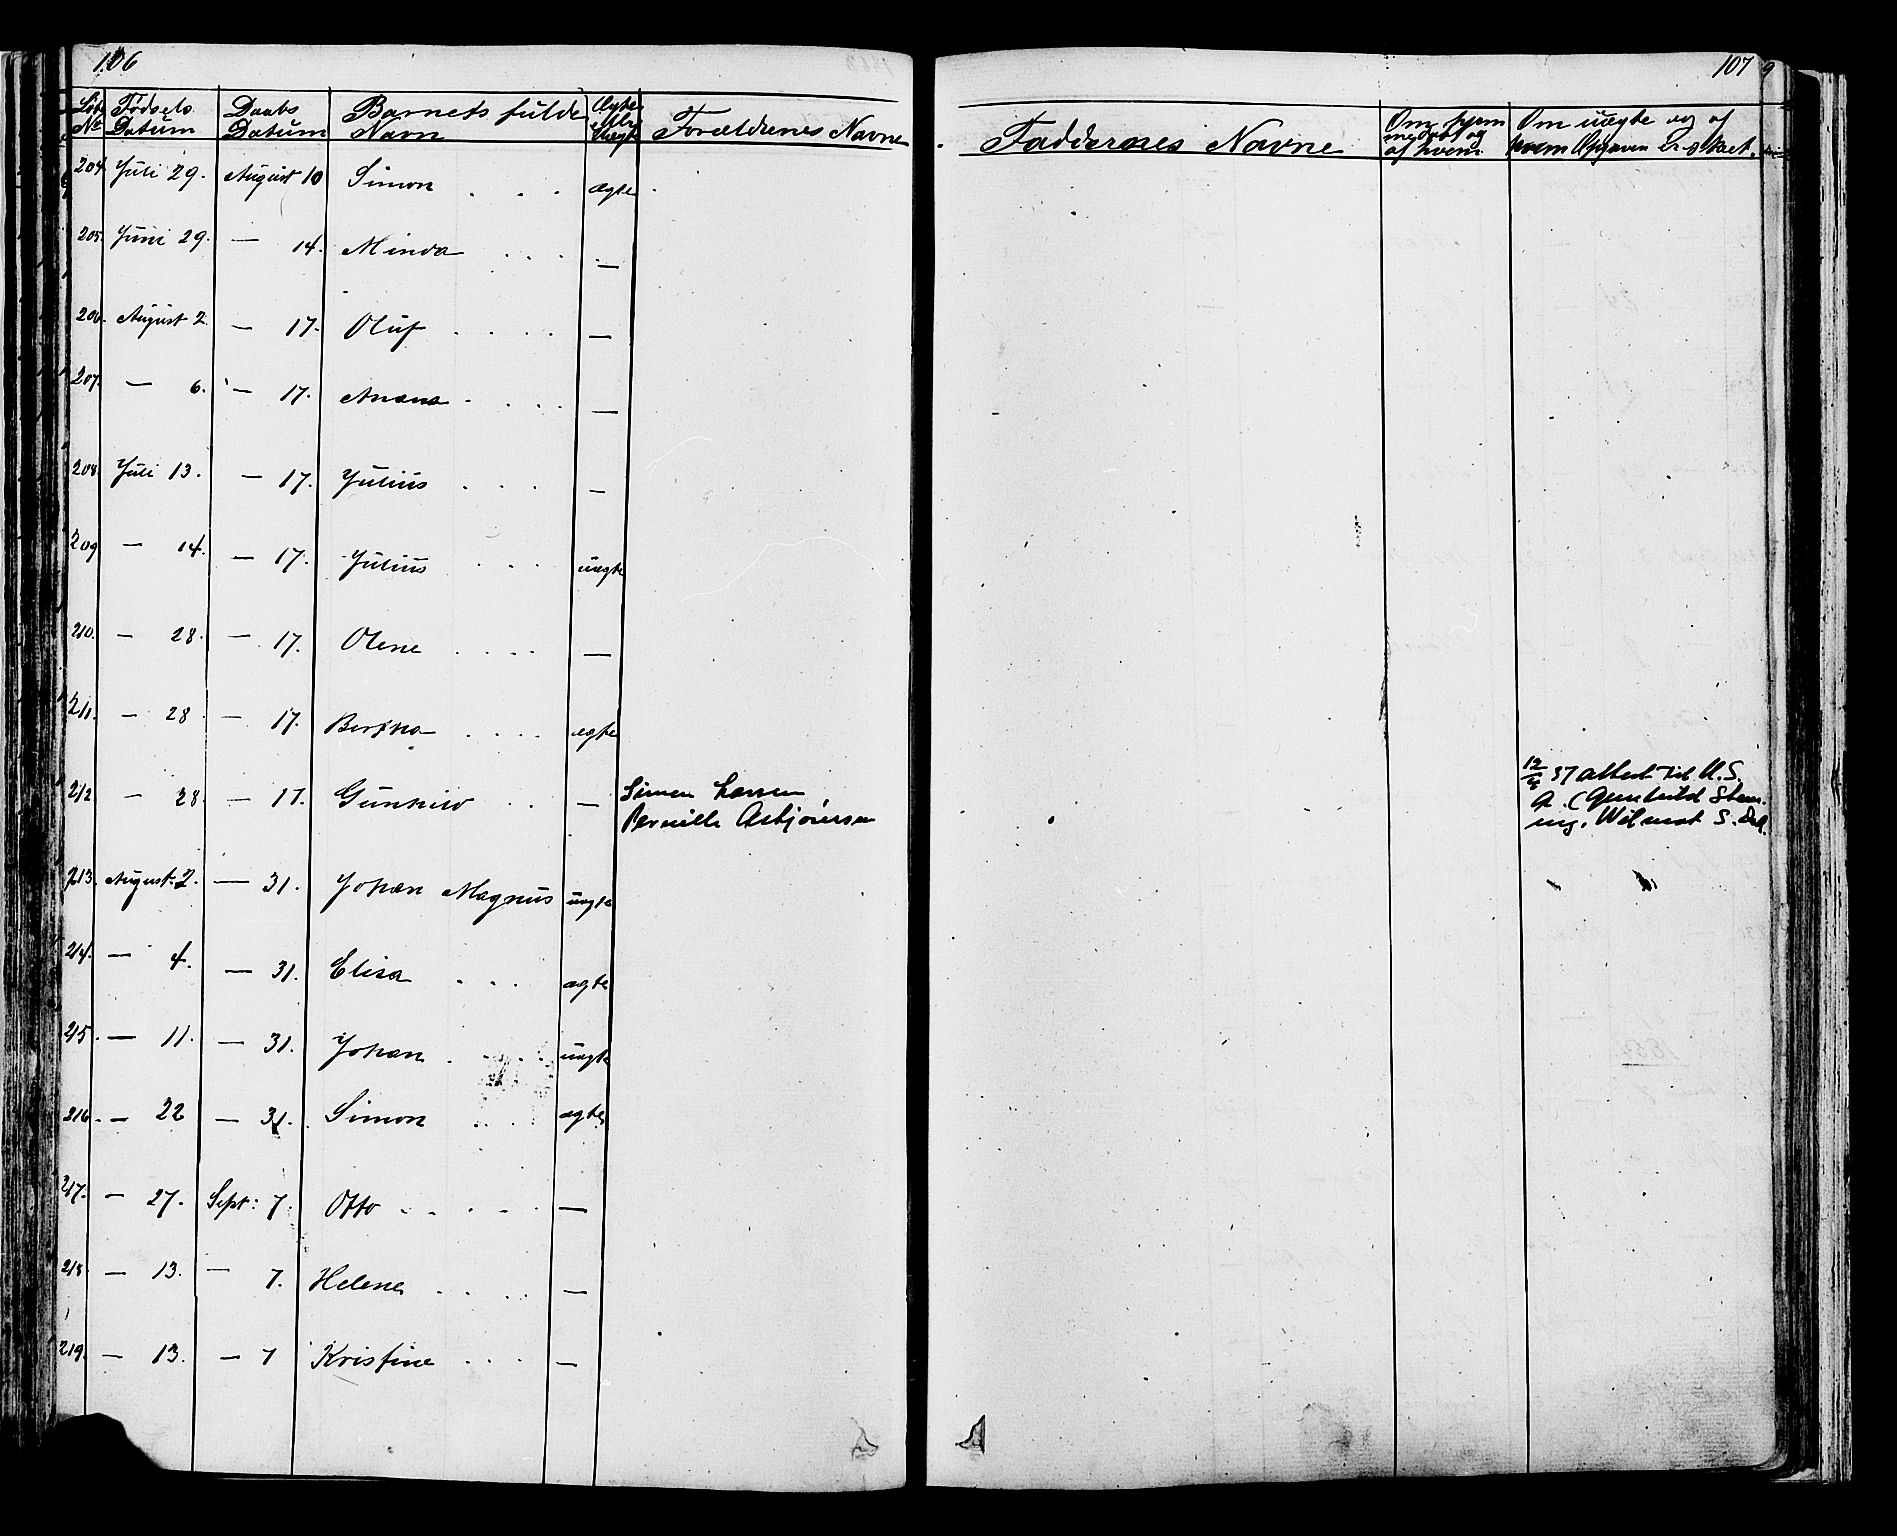 106
Løb Fødsels Daabs Barnets fulde Ægte Forældrenes Navne
No Datum Datum Navn eller Uægte
204. Juli 29. August 10 Simon . . . ægte
205. Juni 29. — 14. Minda . . . —
206. August 2. — 17. Oluf . . . . —
207. — 6. — 17. . . . . —
208. Juli 13. — 17. Julius . . . —
209 — 14. — 17. Julius . . . uægte
210. — 28. — 17. Olene . . . . —
211. — 28 — 17. Bertha . . . . ægte
212 — 28. — 17. . . — Simen Larsen
Pernille Asbjørnsen
213. August 2. — 31. Johan Magnus uægte
214. — 4. — 31. Elisa . . . ægte
215. — 11. — 31. Johan . . . . uægte
216. — 22 — 31. Simon . . . ægte
217. — 27. Sept: 7. Otto . . . . . —
218 — 13. — 7. Helene . . . . —
219. — 13. — 7 Kristine . . . . —
107
Faddernes Navne
Om hjem
medøbt og
af hvem
Om uægte og af
hvem Opgaven er skeet.
12/4 37 attest til U.S.
A. (Gunhild Stem.
ing, Wilmot S. Dak.